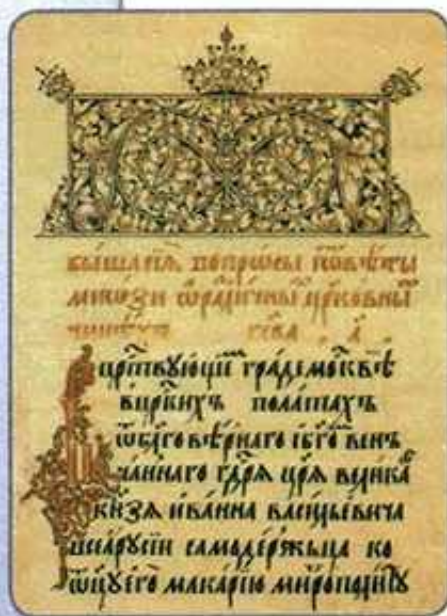 бы́шаѧ. вопро́сы ѿвѣ́ты
мно́зи ѡра́личны̏ цр҃ко́вны̏
чинѣхъ гла́ва а҃
цр҃ствующїи гра́де москвѣ̀
вцр҃ких̾ъ пола́тахъ
ѿбл҃говѣ́рнаго їбг҃о̀ венъ
ча́ннаго гдр҃ѧ цр҃ѧ вели́ка
кнѧ́зѧ ива́нна васи́лье́вича
всеа̀русїи самоде́ржьца ко
ѿцꙋ̀его̀ мака́рїю митрополи́тꙋ